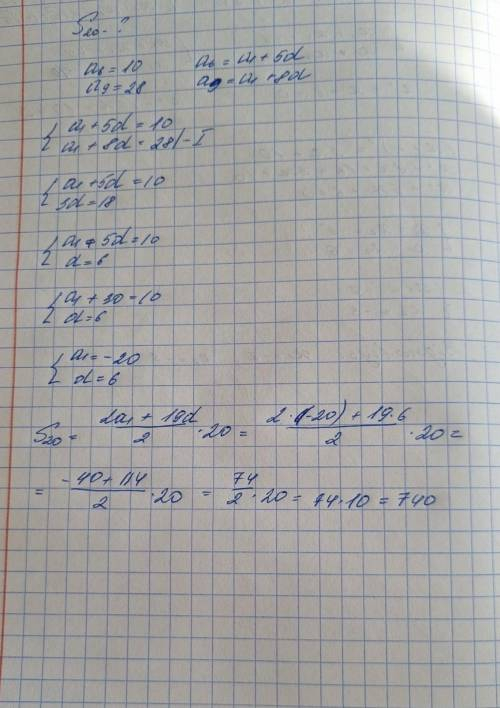 S₂₀ - ?
a₆ = 10 a₆ = a₁ + 5d
a₉ = 28 a₉ = a₁ + 8d
{ a₁ + 5d = 10
a₁ + 8d = 28 | - I
{ a₁ + 5d = 10
3d = 18
{ a₁ + 5d = 10
d = 6
{ a₁ + 30 = 10
d = 6
{ a₁ = -20
d = 6
S₂₀ = (2a₁ + 19d)/2 · 20 = (2 · (-20) + 19 · 6)/2 · 20 =
= (-40 + 114)/2 · 20 = 74/2 · 20 = 74 · 10 = 740